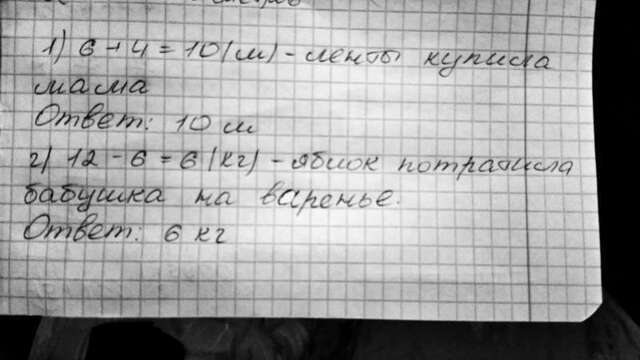 1) 6 + 4 = 10 (м) - ленты купила
мама
Ответ: 10 м
2) 12 - 6 = 6 (кг) - яблок потратила
бабушка на варенье.
Ответ: 6 кг